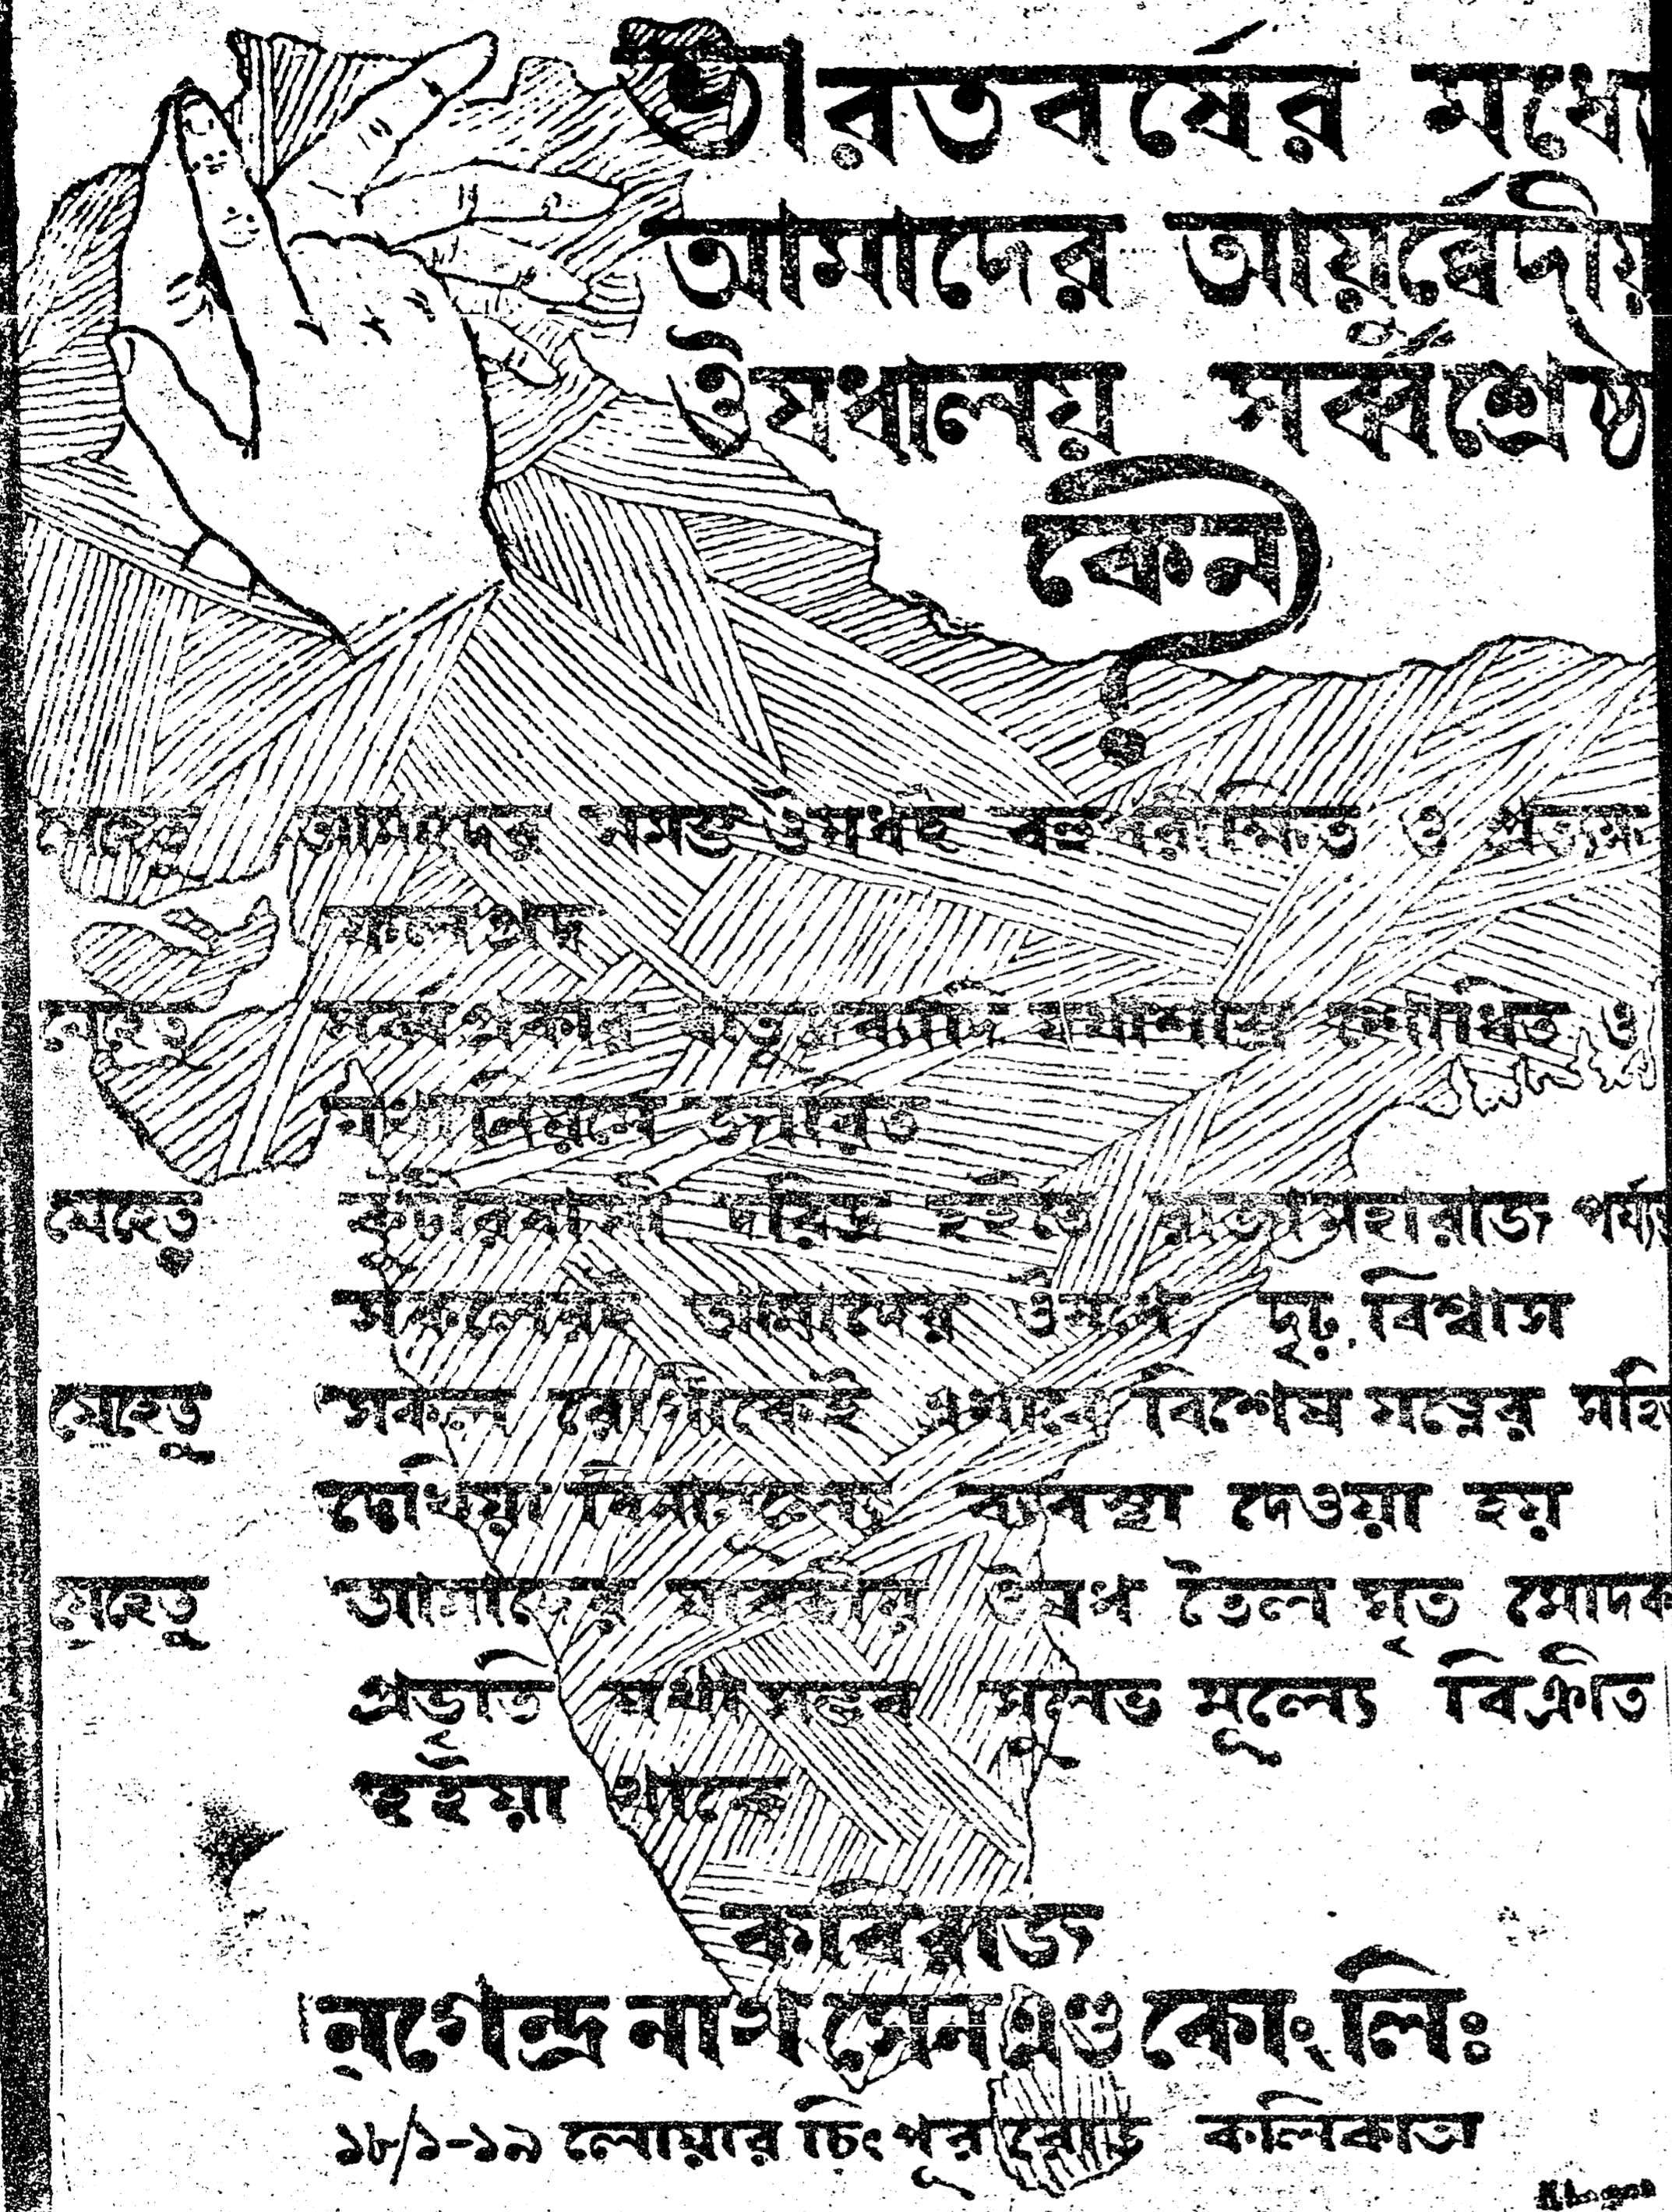 ভারতবর্ষের মধ্যে
আমাদের আয়ুর্ব্বেদীয়
ঔষধালয় সর্ব্বশ্রেষ্ঠ
কেন
?
যেহেতু আমাদের সমস্ত ঔষধই বহু পরীক্ষিত ও প্রত্যক্ষ
ফলপ্রদ
যেহেতু সর্ব্বপ্রকার ধাতুদ্রব্যাদি যথাশাস্ত্র শোধিত ও
যথানিয়মে জারিত
যেহেতু কুটীরবাসী দরিদ্র হইতে রাজামহারাজ পর্য্যন্ত
সকলেরই আমাদের ঔষধে দৃঢ় বিশ্বাস
যেহেতু সকল রোগীকেই এখানে বিশেষ যত্নের সহিত
দেখিয়া বিনামূল্যে ব্যবস্থা দেওয়া হয়
যেহেতু আমাদের যাবতীয় ঔষধ তৈল ঘৃত মোদক
প্রভৃতি যথাসম্ভব সুলভ মূল্যে বিক্রীত
হইয়া থাকে
কবিরাজ
নগেন্দ্র নাথ সেন এণ্ড কোং লিঃ
১৮/১-১৯ লোয়ার চিৎপুর রোড কলিকাতা